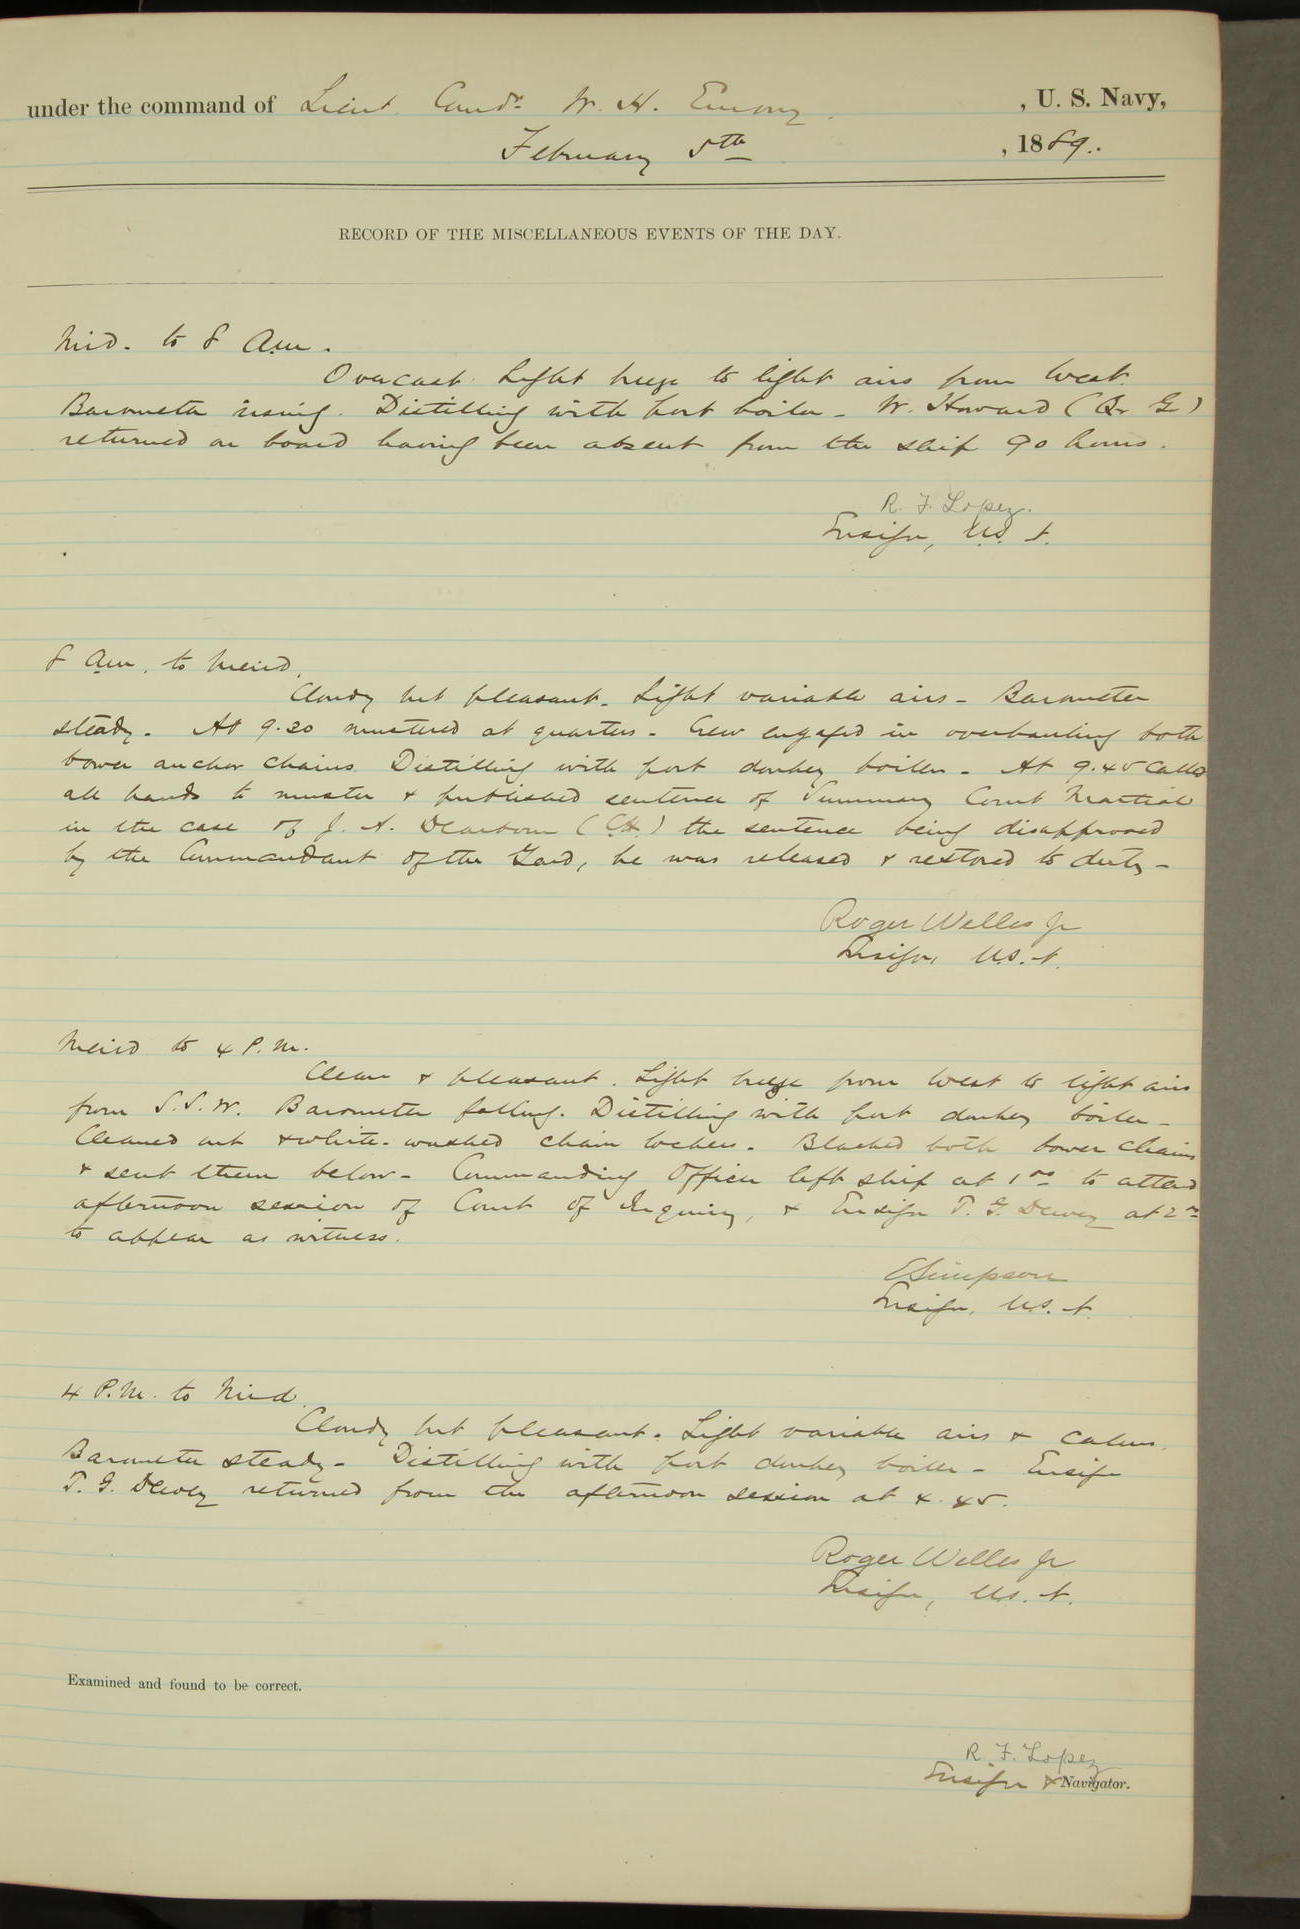 under the command of Lieut. Comdr. W. H. Emory, U. S. Navy,
February 5th, 1889.
RECORD OF THE MISCELLANEOUS EVENTS OF THE DAY.
Mid. to 8 a.m.
Overcast. Light breeze to light airs from West.
Barometer rising. Distilling with port boiler - W. Howard (Qr. G.)
returned on board having been absent from the ship 90 hours.
R. F. Lopez.
Ensign, U.S.N.
8 a.m. to Merid.
Cloudy but pleasant. Light variable airs - Barometer
steady. At 9.20 mustered at quarters. Crew engaged in overhauling both
bower anchor chains. Distilling with port donkey boiler - At 9.45 called
all hands to muster & published sentence of Summary Court Martial
in the case of J. A. Dearborn (C.H.) the sentence being disapproved
by the Commandant of the Yard, he was released & restored to duty -
Roger Welles Jr
Ensign, U.S.N.
Merid to 4 P.M.
Clear & pleasant. Light breeze from West to light airs
from S.S.W. Barometer falling. Distilling with port donkey boiler -
Cleaned out & white-washed chain lockers. Blacked both bower chains
& sent them below - Commanding Officer left ship at 1 00 to attend
afternoon session of Court of Inquiry, & Ensign T. G. Dewey at 2 00
to appear as witness.
E Simpson
Ensign, U.S.N.
4 P.M. to Mid.
Cloudy but pleasant. Light variable airs & calms.
Barometer steady - Distilling with port donkey boiler - Ensign
T. G. Dewey returned from the afternoon session at 4.45.
Roger Welles Jr
Ensign, U.S.N.
Examined and found to be correct.
R. F. Lopez
Ensign & Navigator.